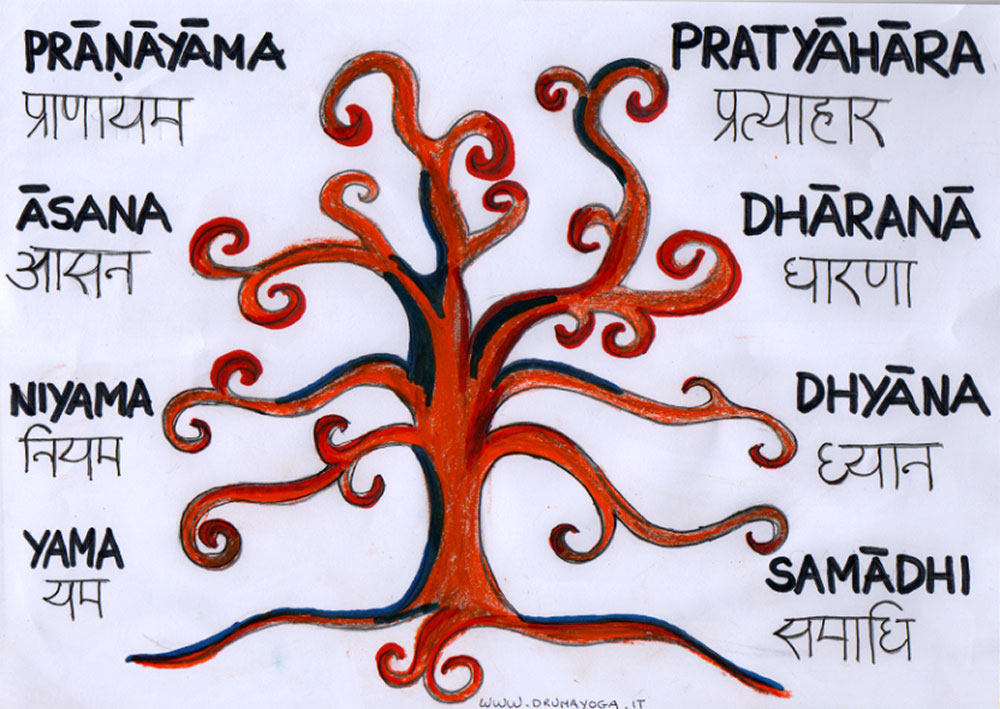 PRĀṆĀYĀMA
प्राणायम
ĀSANA
आसन
NIYAMA
नियम
YAMA
यम
PRATYĀHĀRA
प्रत्याहार
DHĀRANĀ
धारणा
DHYĀNA
ध्यान
SAMĀDHI
समाधि
WWW.DRUMAYOGA.IT